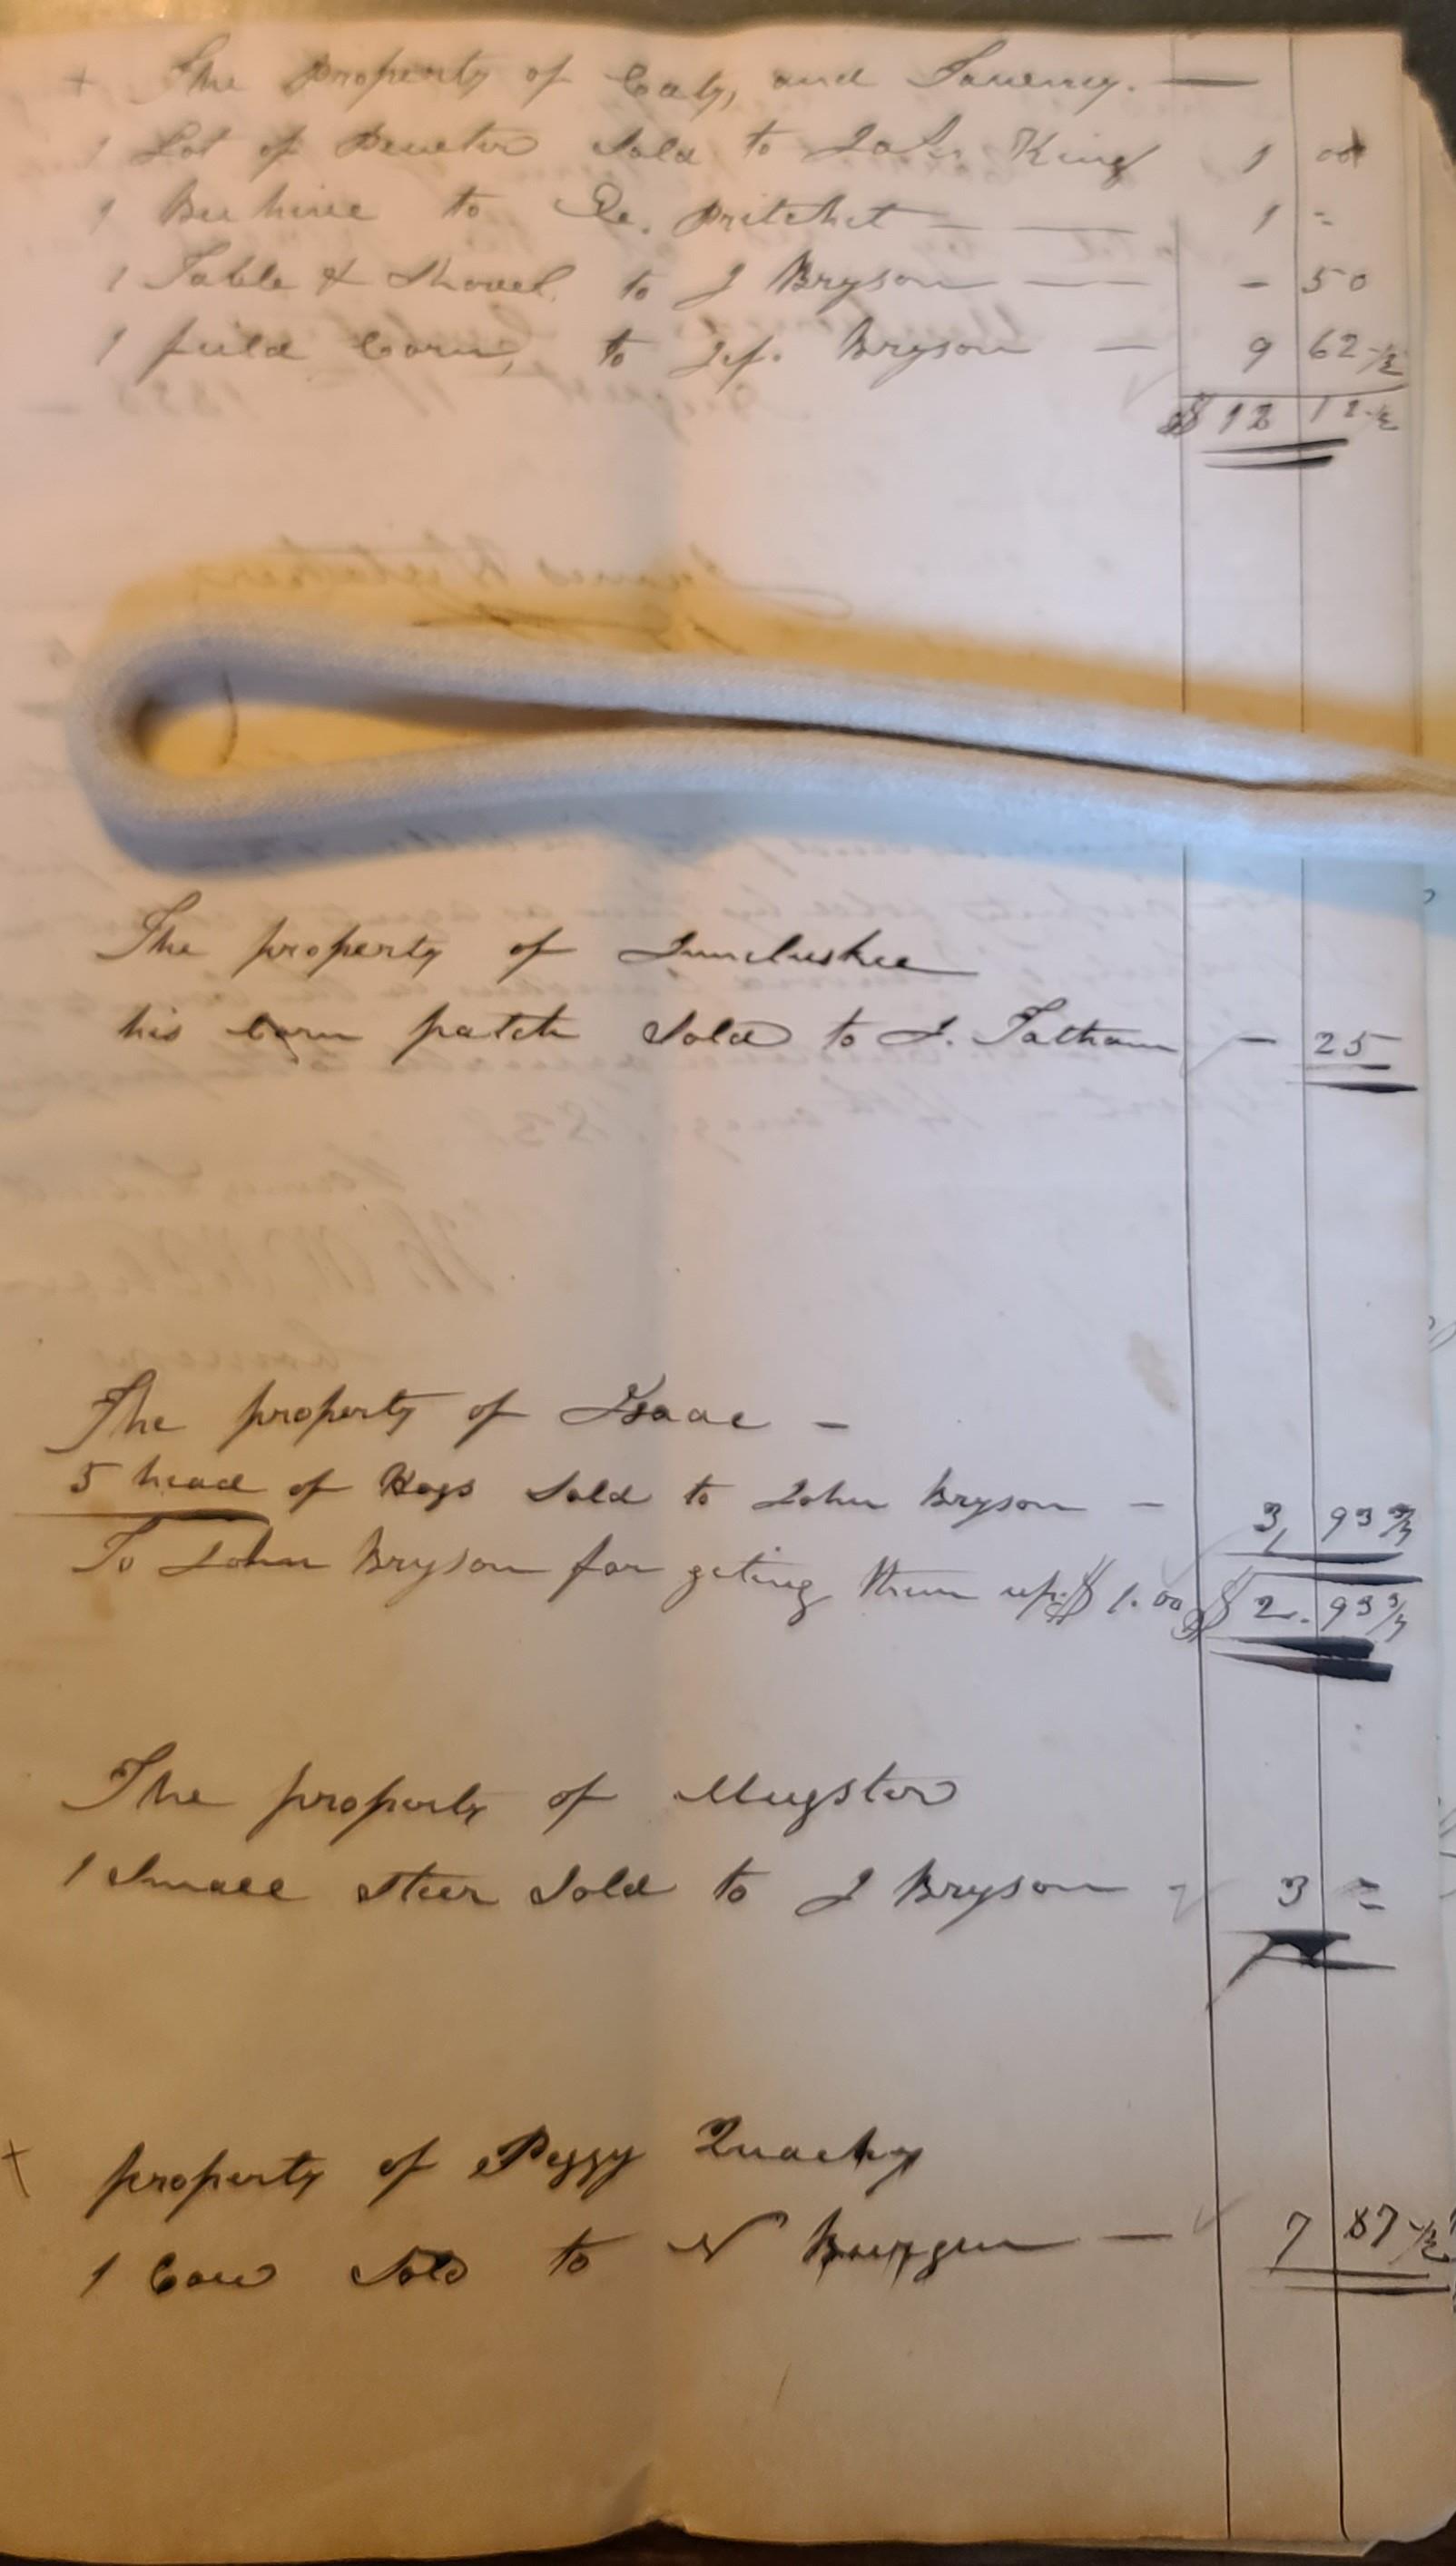 + The Property of Caty, and Tauency. —
1 Lot of Pewter Sold to Jahu King 1 00
1 Bee hive to De. Pritchet — 1 =
1 Table & Shovel to J Bryson — - 50
1 field Corn, to Jp. Bryson — 9 62½
$12 12½
The property of Juneluskee
his Corn patch Sold to J. Tatham - 25
The property of Isaac -
5 head of Hogs Sold to John Bryson - 3, 93¾
To John Bryson for geting them up $1.00 $2. 93¾
The property of Mugster
1 Small Steer Sold to J Bryson - 3 =
+ property of Peggy Quacky
1 Cow Sold to N — 7 87½